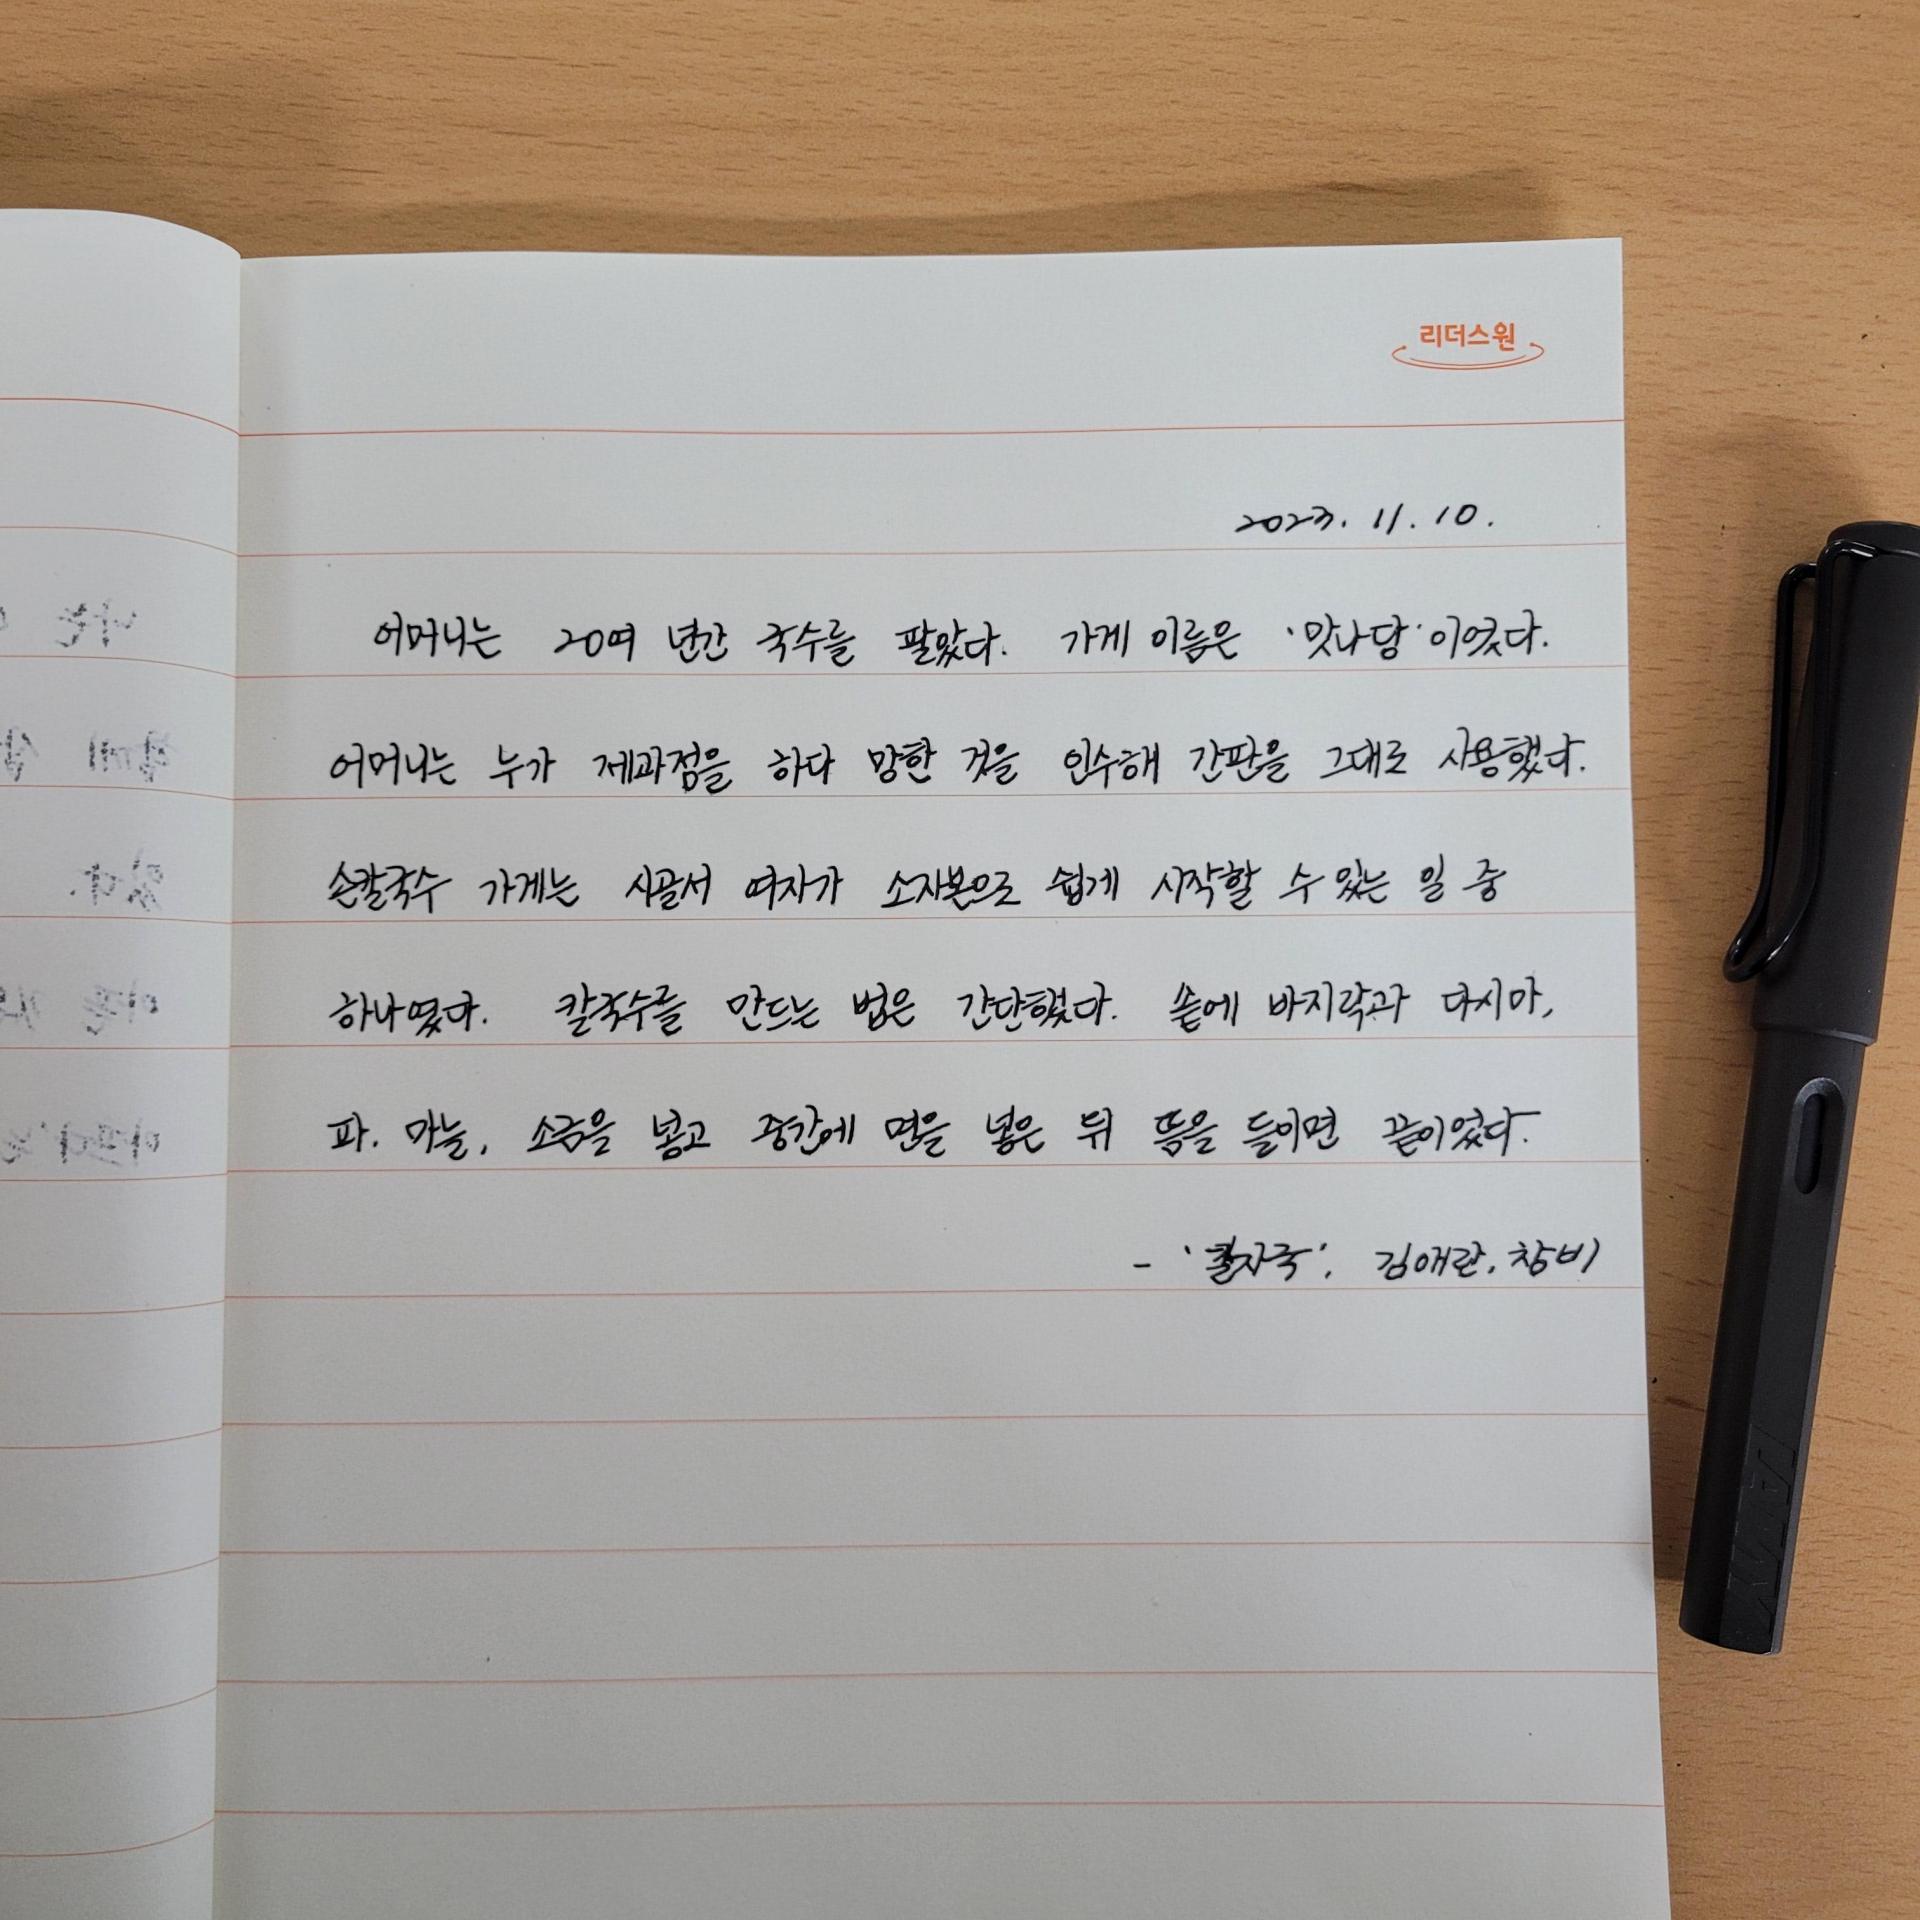 리더스원
2023. 11. 10.
어머니는 20여 년간 국수를 팔았다. 가게 이름은 '맛나당'이었다.
어머니는 누가 제과점을 하다 망한 것을 인수해 간판을 그대로 사용했다.
손칼국수 가게는 시골서 여자가 소자본으로 쉽게 시작할 수 있는 일 중
하나였다. 칼국수를 만드는 법은 간단했다. 솥에 바지락과 다시마,
파. 마늘, 소금을 넣고 중간에 면을 넣은 뒤 뜸을 들이면 끝이었다.
- '칼자국', 김애란, 창비
나는
있다.